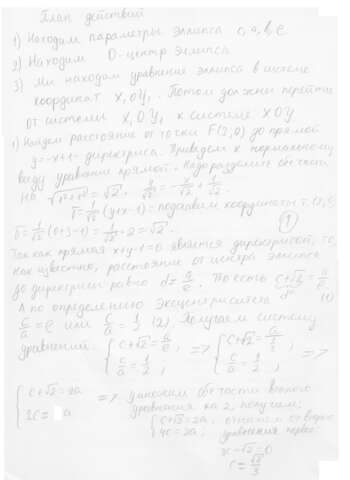 План действий
1) Находим параметры эллипса c, a, b, e
2) Находим O-центр эллипса
3) Мы находим уравнение эллипса в системе
координат X₁OY₁. Потом должны перейти
от системы X₁OY₁ к системе XOY
1) Найдем расстояние от точки F(2;0) до прямой
y=-x+1- директриса. Приведем к нормальному
виду уравнение прямой. Надо разделить обе части
на √(1²+1²)=√2. y/√2 = -x/√2 + 1/√2.
δ=1/√2(y+x-1)= подставим координаты т.
δ=1/√2(0+3-1)=1/√2·2=√2. (1)
Так как прямая x+y-1=0 является директрисой, то,
как известно, расстояние от центра эллипса
до директрисы равно d=a/e. То есть c+√2=a/e (1)
А по определению эксцентриситета
c/a=e или c/a=1/2 (2). Получаем систему
уравнений: { c+√2=a/e, c/a=1/2, => { c+√2=a/(1/2), c/a=1/2, =>
{ c+√2=2a 2c=a => умножим обе части второго
уравнения на 2, получим;
{ c+√2=2a, 4c=2a; отнимем от второго
уравнения первое:
3c-√2=0
c=√2/3